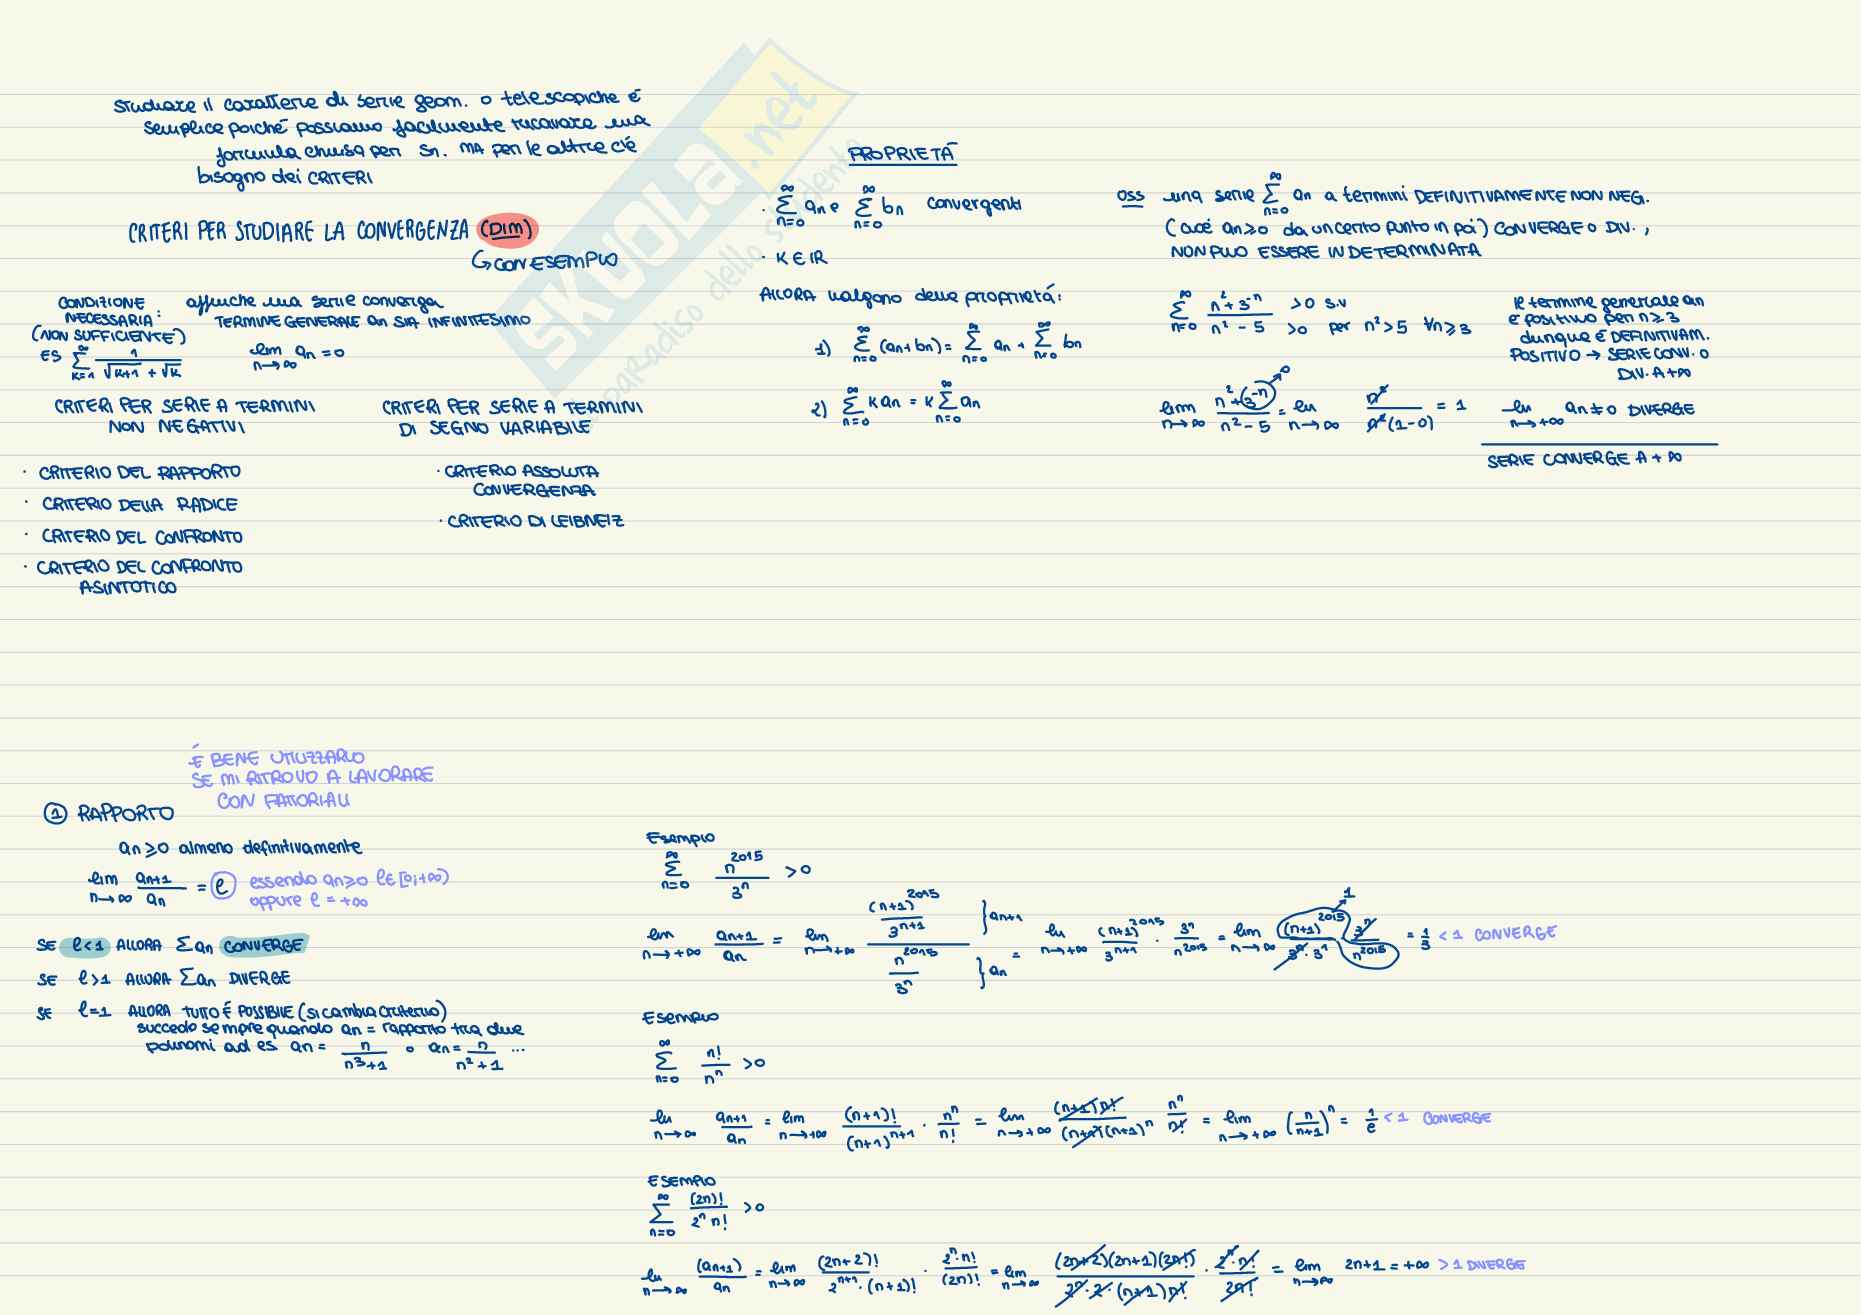 Studiare il carattere di serie geom. o telescopiche é
semplice poiché possiamo facilmente ricavare una
formula chiusa per Sn. MA per le altre c'é
bisogno dei CRITERI
CRITERI PER STUDIARE LA CONVERGENZA (DIM)
↳ CON ESEMPIO
CONDIZIONE NECESSARIA: (NON SUFFICIENTE)
affinche una serie converga
TERMINE GENERALE an SIA INFINITESIMO
ES ∑_{k=1}^{∞} 1/(√(k+1) + √k)
lim_{n→∞} an = 0
CRITERI PER SERIE A TERMINI
NON NEGATIVI
· CRITERIO DEL RAPPORTO
· CRITERIO DELLA RADICE
· CRITERIO DEL CONFRONTO
· CRITERIO DEL CONFRONTO
ASINTOTICO
CRITERI PER SERIE A TERMINI
DI SEGNO VARIABILE
· CRITERIO ASSOLUTA
CONVERGENZA
· CRITERIO DI LEIBNEIZ
PROPRIETÁ
· ∑_{n=0}^{∞} an e ∑_{n=0}^{∞} bn convergenti
· K ∈ IR
ALLORA valgono delle proprietá:
1) ∑_{n=0}^{∞} (an+bn) = ∑_{n=0}^{∞} an + ∑_{n=0}^{∞} bn
2) ∑_{n=0}^{∞} K an = K ∑_{n=0}^{∞} an
OSS una serie ∑_{n=0}^{∞} an a termini DEFINITIVAMENTE NON NEG.
(cioé an≥0 da un certo punto in poi) CONVERGE O DIV.,
NON PUO ESSERE INDETERMINATA
∑_{n=0}^{∞} (n²+3^{-n})/(n²-5) >0 S.V >0 per n²>5 ∀n≥3
le termine generale an
é positivo per n≥3
dunque É DEFINITIVAM.
POSITIVO → SERIE CONV. O
DIV. A +∞
lim_{n→∞} (n²+3^{-n})/(n²-5) = lim_{n→∞} n²/(n²(1-0)) = 1
0
lim_{n→+∞} an ≠ 0 DIVERGE
SERIE CONVERGE A +∞
É BENE UTILIZZARLO
SE MI RITROVO A LAVORARE
CON FATTORIALI
① RAPPORTO
an≥0 almeno definitivamente
lim_{n→∞} an+1/an = ℓ essendo an≥0 ℓ∈[0;+∞)
oppure ℓ = +∞
SE ℓ<1 ALLORA ∑an CONVERGE
SE ℓ>1 ALLORA ∑an DIVERGE
SE ℓ=1 ALLORA TUTTO É POSSIBILE (si cambia criterio)
succede sempre quando an = rapporto tra due
polinomi ad es an = n/(n³+1) o an = n/(n²+1) ...
Esempio
∑_{n=0}^{∞} n^2015/3^n >0
lim_{n→+∞} an+1/an = lim_{n→+∞} ((n+1)^2015/3^{n+1})/(n^2015/3^n) }an+1 }an = lim_{n→+∞} (n+1)^2015/3^{n+1} · 3^n/n^2015 = lim_{n→∞} (n+1)^2015/(3^n·3^1) 3^n/n^2015 = 1/3 <1 CONVERGE
1
Esempio
∑_{n=0}^{∞} n!/n^n >0
lim_{n→∞} an+1/an = lim_{n→+∞} (n+1)!/(n+1)^{n+1} · n^n/n! = lim_{n→+∞} (n+1)n!/((n+1)(n+1)^n) n^n/n! = lim_{n→+∞} (n/(n+1))^n = 1/e <1 CONVERGE
ESEMPIO
∑_{n=0}^{∞} (2n)!/(2^n n!) >0
lim_{n→∞} (an+1)/an = lim_{n→∞} (2n+2)!/(2^{n+1}·(n+1)!) · 2^n·n!/(2n)! = lim_{n→∞} (2n+2)(2n+1)(2n!)/(2^n·2·(n+1)n!) · 2^n·n!/2n! = lim_{n→∞} 2n+1 = +∞ >1 DIVERGE
SKUOLA.net
paradiso dello studente